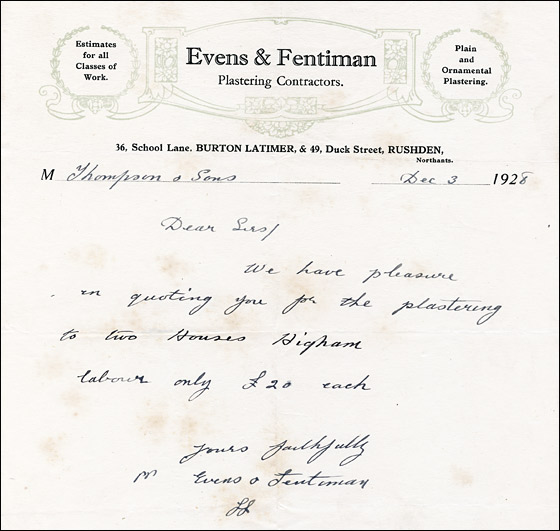 Estimates
for all
Classes of
Work.
Evens & Fentiman
Plastering Contractors.
Plain
and
Ornamental
Plastering.
36, School Lane. BURTON LATIMER, & 49, Duck Street, RUSHDEN,
Northants.
M Thompson & Sons Dec 3 1928
Dear Sirs/
We have pleasure
in quoting you for the plastering
to two Houses Higham
labour only £20 each
yours faithfully
Evens & Fentiman